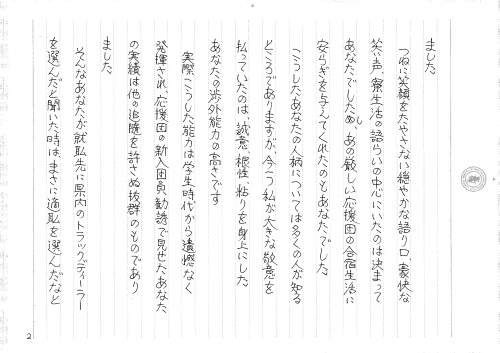 ました
つねに笑顔をたやさない穏やかな語り口、豪快な
笑い声、寮生活の語らいの中心にいたのは決まって
あなたでしたし、あの厳しい応援団の合宿生活に
安らぎを与えてくれたのもあなたでした
こうしたあなたの人柄については多くの人が知る
ところでありますが、今一つ私が大きな敬意を
払っていたのは、誠意、根性、粘りを身上にした
あなたの渉外能力の高さです
実際こうした能力は学生時代から遺憾なく
発揮され、応援団の新入団員勧誘で見せたあなた
の実績は他の追随を許さぬ抜群のものであり
ました
そんなあなたが就職先に県内のトラックディーラー
を選んだと聞いた時は、まさに適職を選んだなと
2